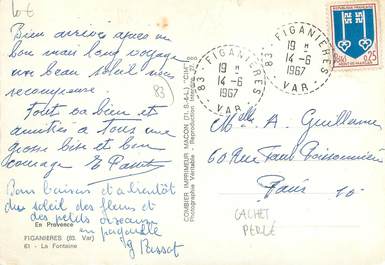 Bien arrivés après un
bon mais long voyage
un beau soleil nous
récompense.
Tout va bien et
amitiés à tous une
grosse bise et bon
courage
Bons baisers et à bientôt
du soleil des fleurs et
des petits oiseaux
en pagaille
83
En Provence
FIGANIERES (83. Var)
61 - La Fontaine
COMBIER IMPRIMEUR MACON (71-S.-&-L) "CIM"
Photographie Véritable - Reproduction Interdite
83. FIGANIERES
19 H
14-6
1967
VAR
83. FIGANIERES
19 H
14-6
1967
VAR
0,25
Melle A. Guillaume
60 Rue Faub Poissonnière
Paris 10
CACHET
PERLÉ